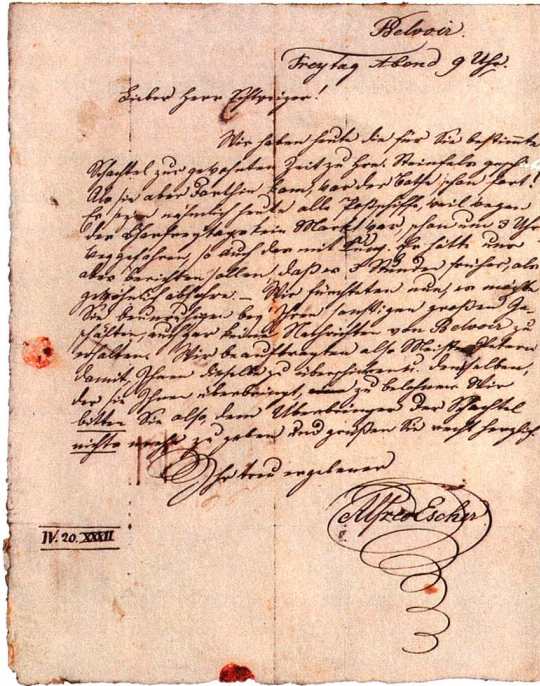 Belvoir.
Freytag Abend 9 Uhr.
Lieber Herr
Wir haben heute die für Sie bestimmte
Schachtel zur gewohnten Zeit zu Hrn.
Als sie aber dorthin kam, war der Bothe schon fort!
Es heute alle weil wegen
der kein Markt war, schon um 3 Uhr
weggefahren, so auch der mit hätte uns
aber berichten sollen, daß er 3 Stunden früher als
gewöhnlich abfahre. – Wir fürchteten nun, es möchte
Sie beunruhigen bey Ihren sonstigen großen Ge-
schäften, auch gar keine Nachrichten von Belvoir zu
erhalten. Wir beauftragten also
damit, Ihnen dieselbe zu überschicken u. denselben,
der sie Ihnen überbringt, zu belohnen. Wir
bitten Sie also, dem Überbringer der Schachtel
nichts mehr zu geben und grüßen Sie recht herzlich
Ihr treu ergebener
Alfred Escher.
IV. 20. XXXII